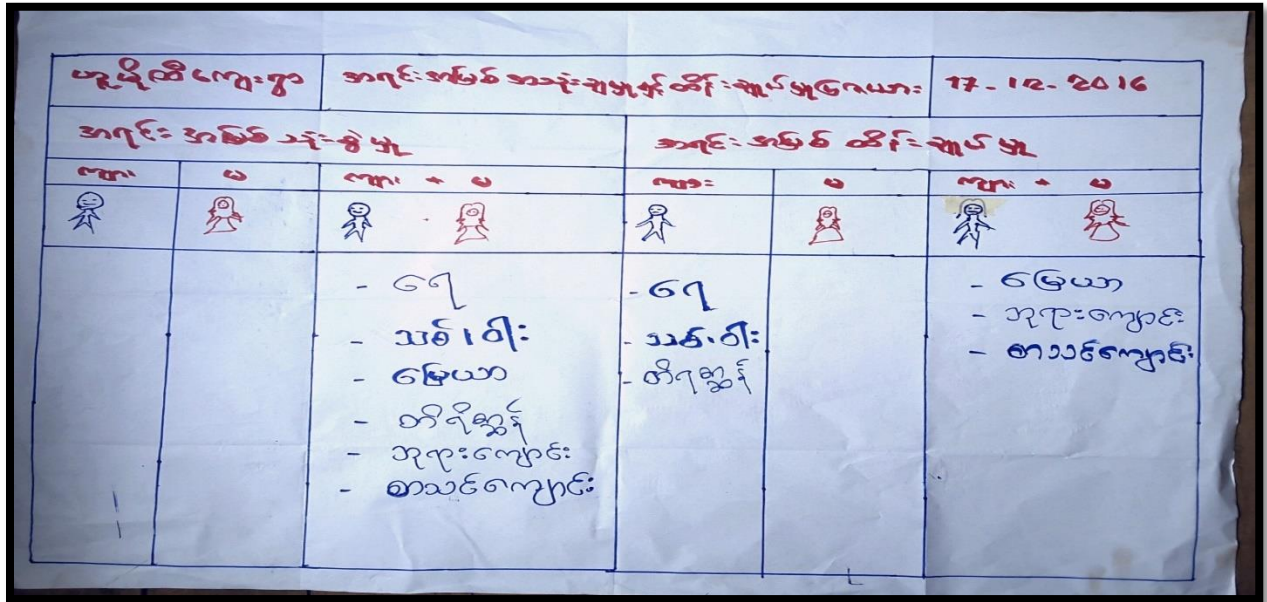 ဟူမိုထီကျေးရွာ အရင်းအမြစ် အသုံးချမှုနှင့်ထိန်းချုပ်မှုဇယား 17-12-2016
အရင်းအမြစ် သုံးစွဲမှု အရင်းအမြစ် ထိန်းချုပ်မှု
ကျား မ ကျား + မ ကျား မ ကျား + မ
- ရေ
- သစ်၊ ဝါး
- မြေယာ
- တိရိစ္ဆာန်
- ဘုရားကျောင်း
- စာသင်ကျောင်း
- ရေ
- သစ်၊ ဝါး
- တိရစ္ဆာန်
- မြေယာ
- ဘုရားကျောင်း
- စာသင်ကျောင်း